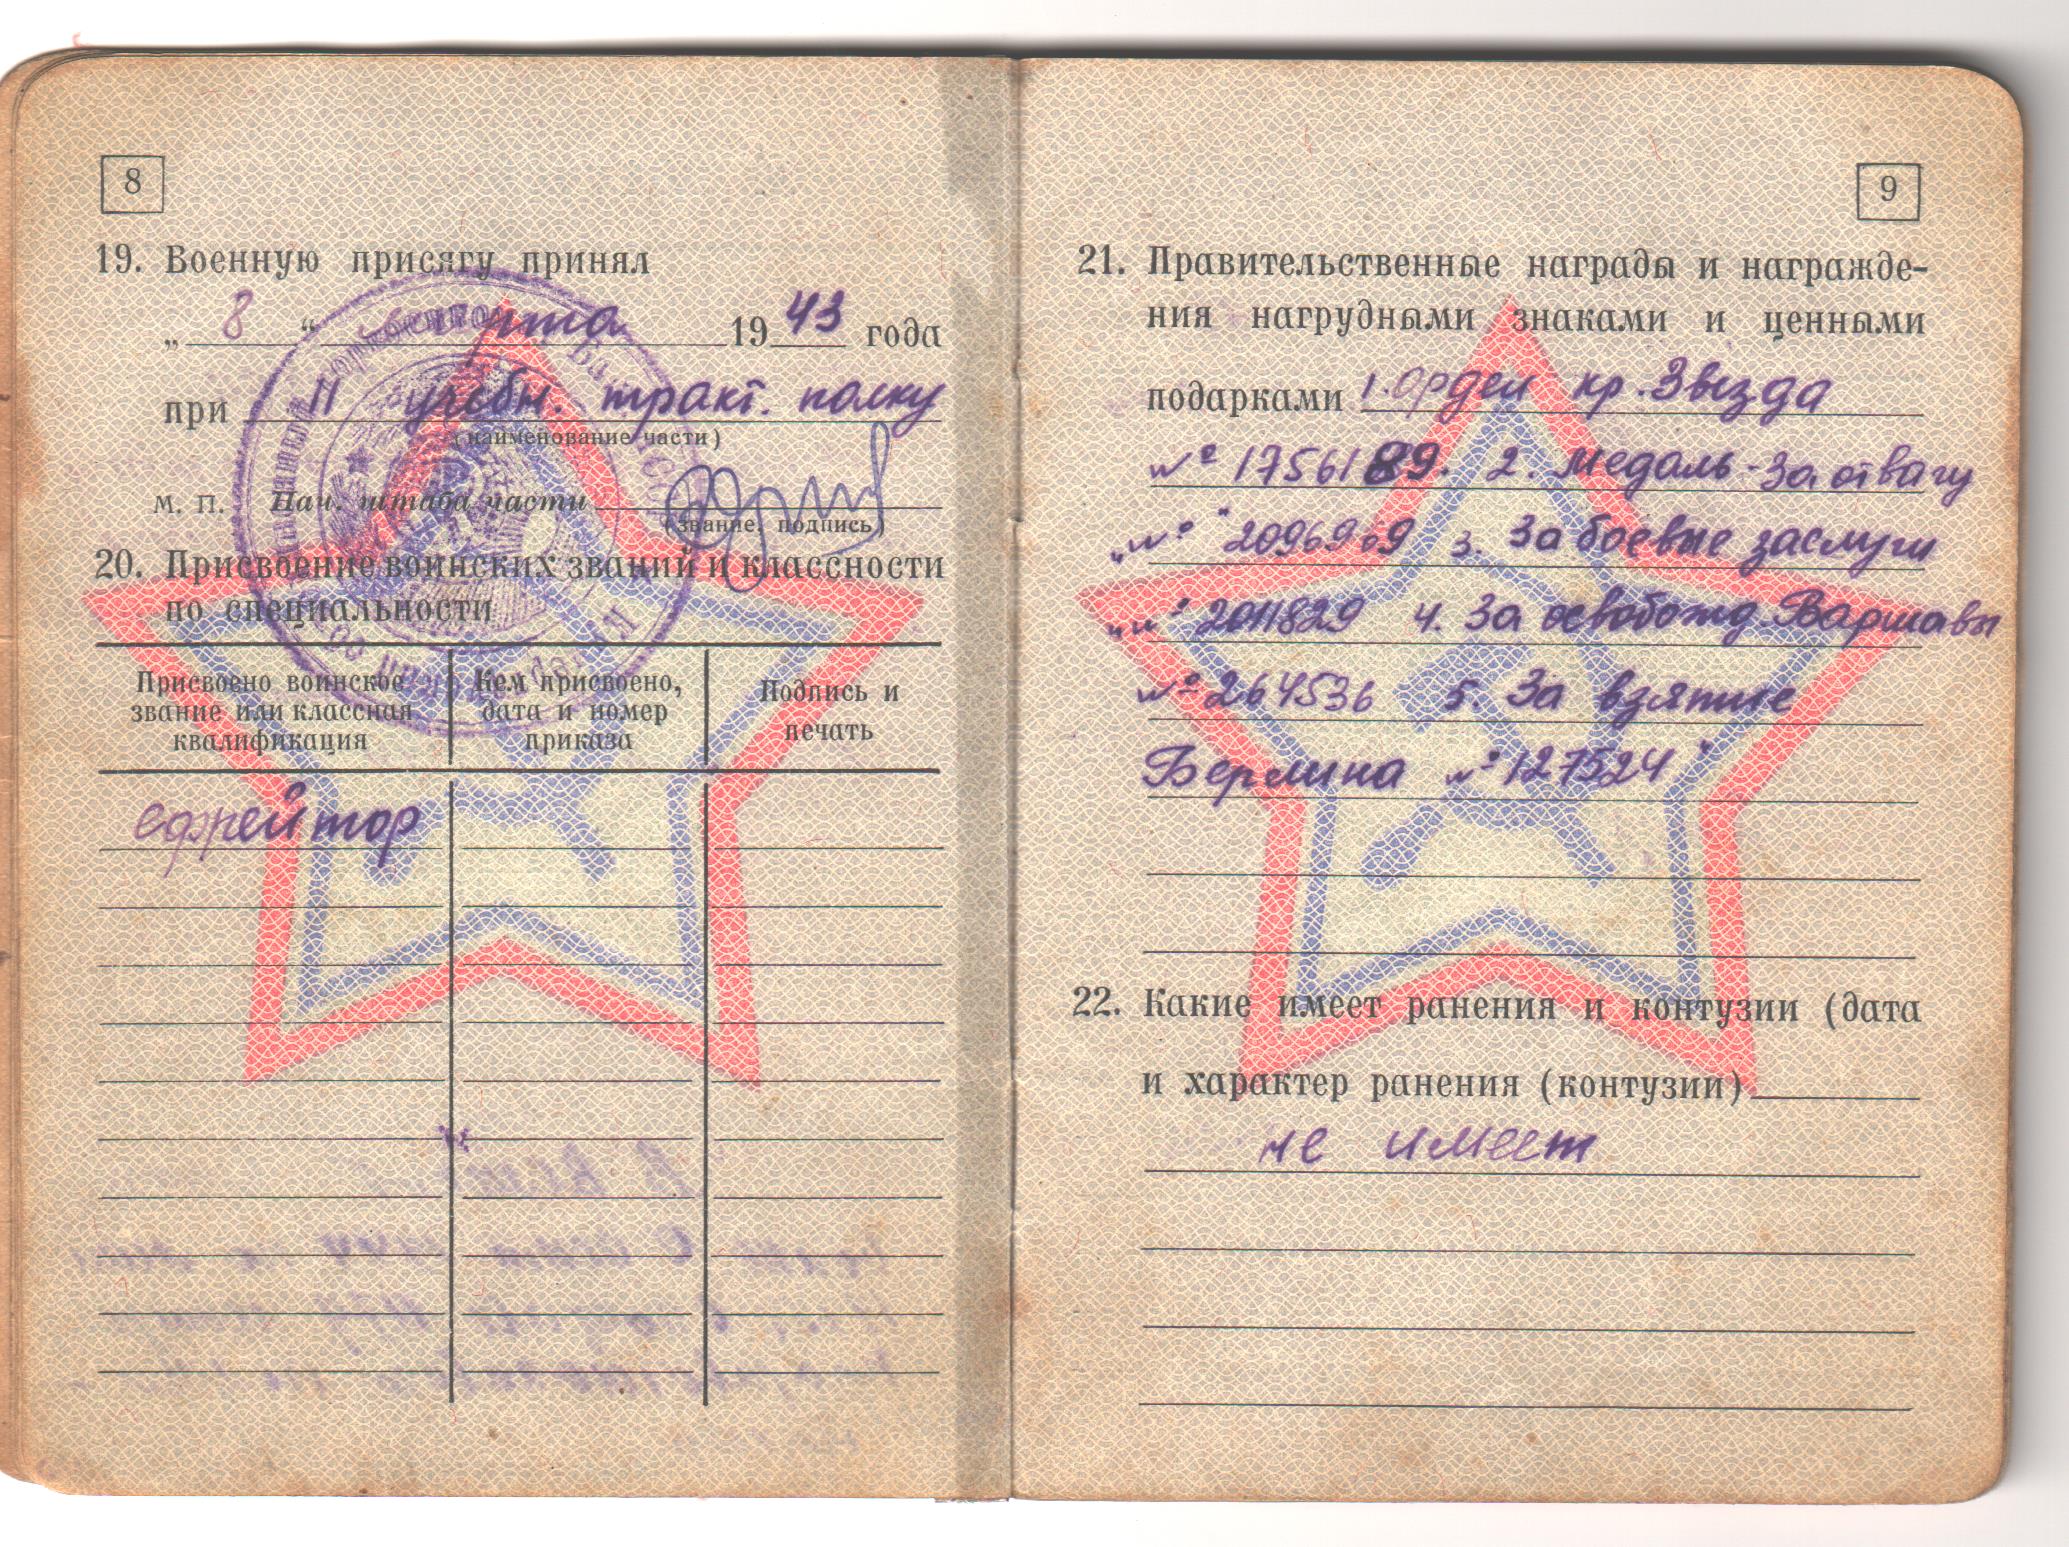 8
19. Военную присягу принял
„ 8 “ марта 1943 года
при 11 учебн. тракт. полку
(наименование части)
М. П. Нач. штаба части
(звание, подпись)
20. Присвоение воинских званий и классности
по специальности
Присвоено воинское звание или классная квалификация
Кем присвоено, дата и номер приказа
Подпись и печать
ефрейтор
9
21. Правительственные награды и награжде-
ния нагрудными знаками и ценными
подарками 1. Орден кр. Звезда
№ 1756189. 2. Медаль - За отвагу
„№" 2096969 3. За боевые заслуги
„№" 2011829 4. За освобожд. Варшавы
№ 264536 5. За взятие
Берлина №127524"
22. Какие имеет ранения и контузии (дата
и характер ранения (контузии)
не имеет